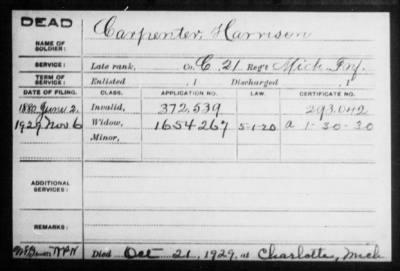 DEAD
NAME OF SOLDIER: Carpenter, Harrison
SERVICE: Late rank, Co. C. 21 Reg't Mich Inf.
TERM OF SERVICE: Enlisted , 1 Discharged , 1
DATE OF FILING. CLASS. APPLICATION NO. LAW. CERTIFICATE NO.
1880 June 2. Invalid, 372,539 293.042
1929 Nov 6 Widow, 1654267 5-1-20 a 1-30-30
Minor,
ADDITIONAL SERVICES:
REMARKS:
Died Oct 21, 1929, at Charlotte, Mich